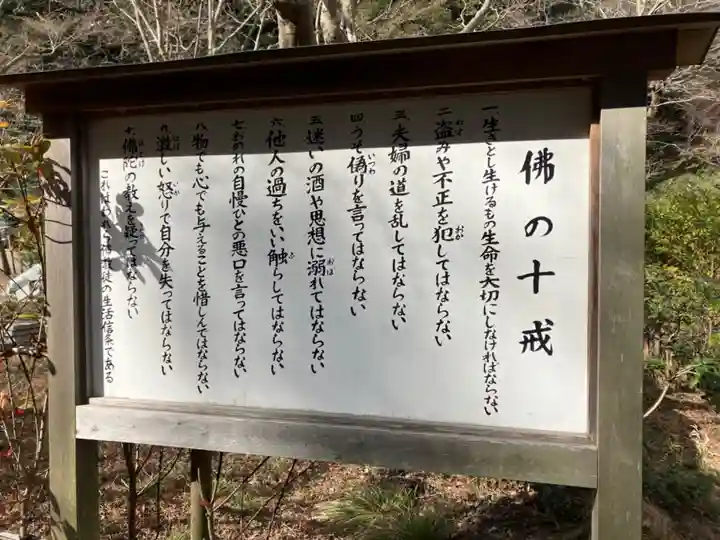 佛の十戒
一 生きとし生けるもの生命を大切にしなければならない
二 盗みや不正を犯してはならない
三 夫婦の道を乱してはならない
四 うそ偽りを言ってはならない
五 迷いの酒や思想に溺れてはならない
六 他人の過ちをいい触らしてはならない
七 おのれの自慢ひとの悪口を言ってはならない
八 物でも心でも与えることを惜しんではならない
九 激しい怒りで自分を失ってはならない
十 佛陀の教えを疑ってはならない
これはわれ 徒の生活信条である